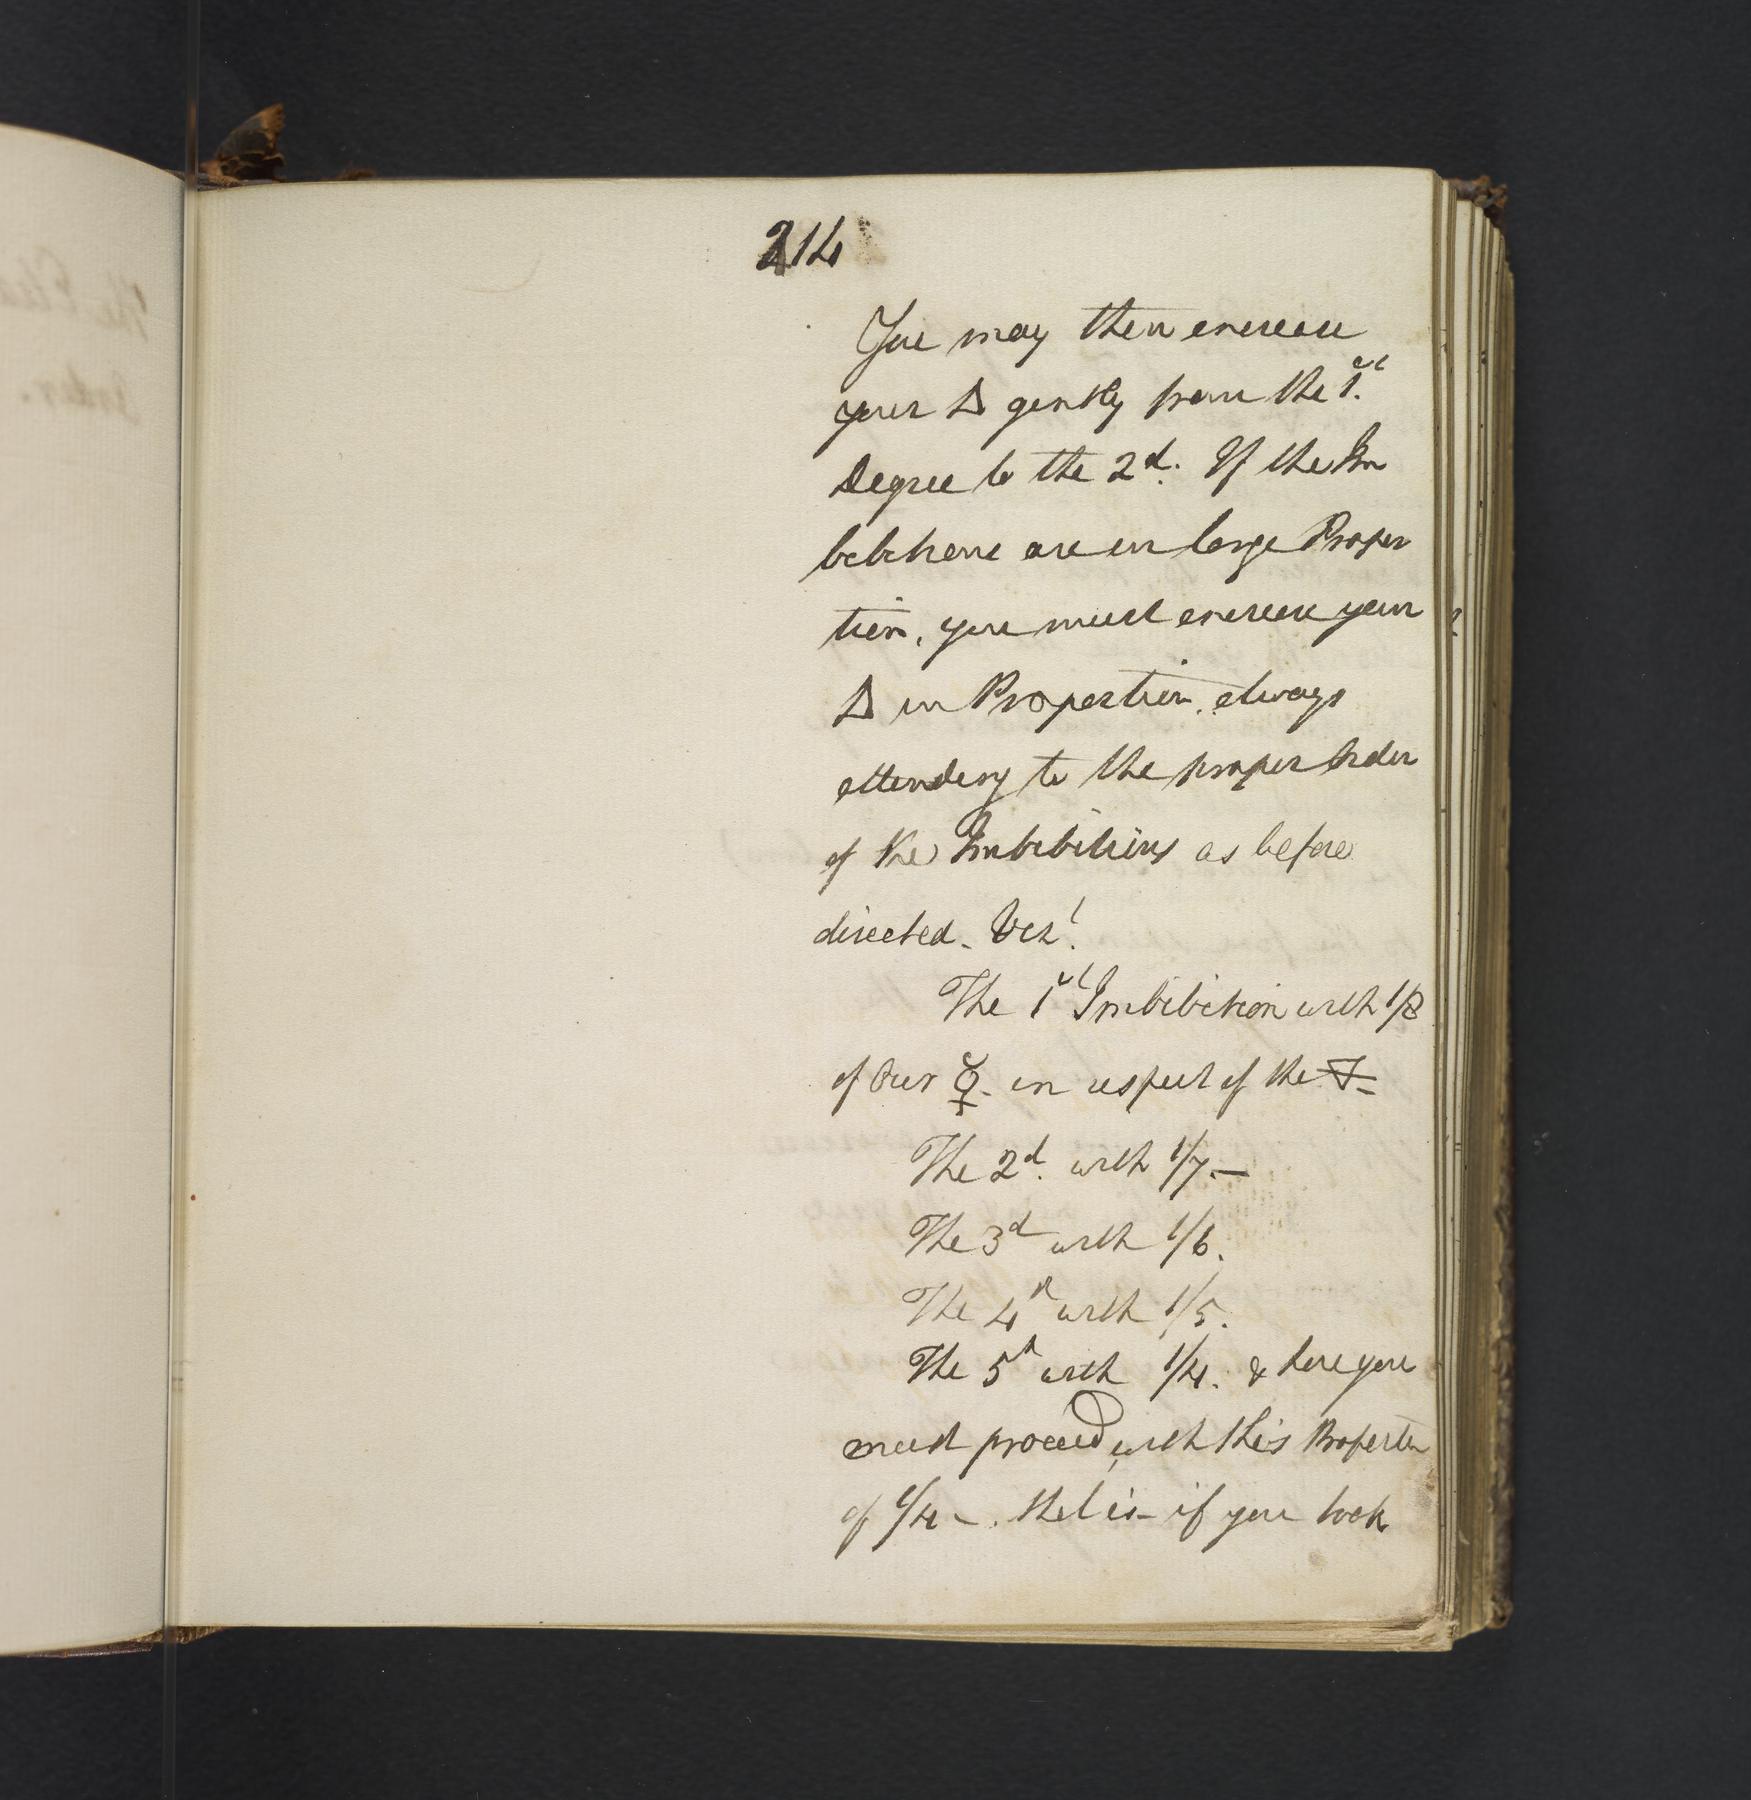 214
You may then increase
your 🜂 gently from the 1st.
Degree to the 2d. If the Im
bibitions are in large Propor
tion, you must increase your
🜂 in Proportion, always
attending to the proper Order
of the Imbibitions as before
directed. Vizt.
The 1st Imbibition with 1/8
of Our ☿. in respect of the 🜃.
The 2d. with 1/7.—
The 3d with 1/6.
The 4th with 1/5.
The 5th with 1/4. & here you
must proceed with this Proportn
of 1/4 –. that is – if you took